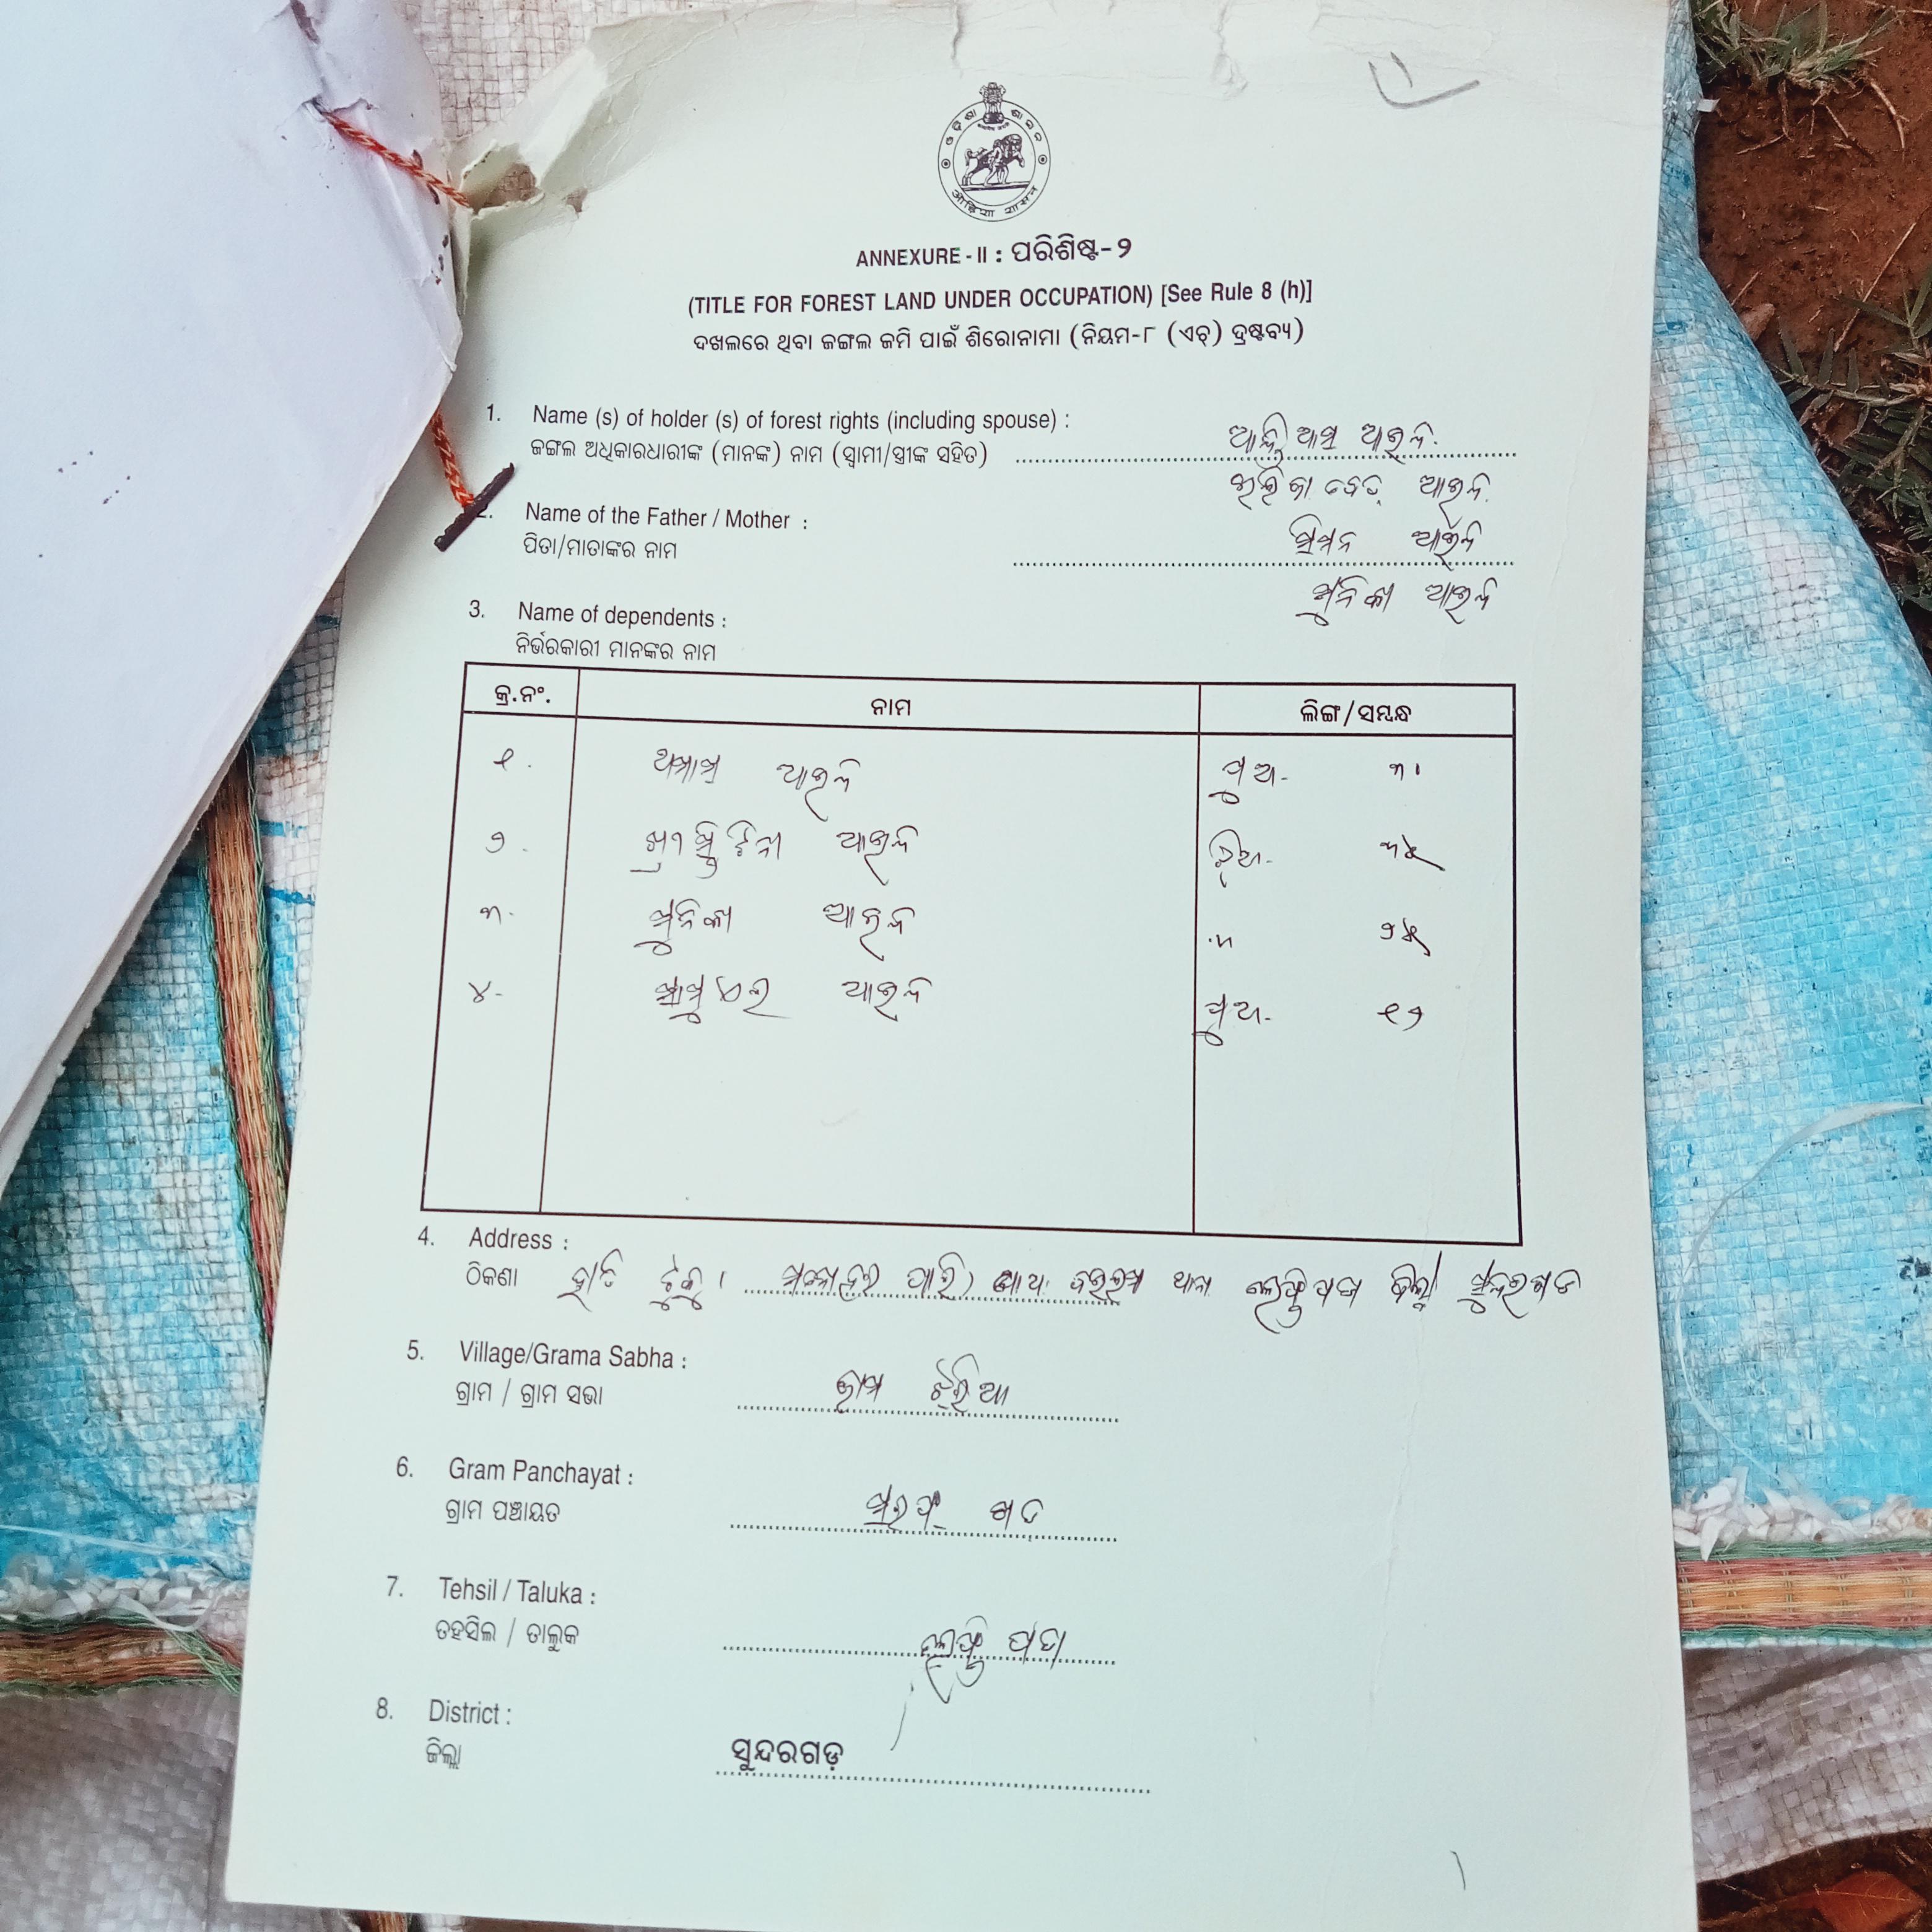 ଓଡ଼ିଶା ଶାସନ
ओड़िशा शासन
ANNEXURE - II : ପରିଶିଷ୍ଟ-୨
(TITLE FOR FOREST LAND UNDER OCCUPATION) [See Rule 8 (h)]
ଦଖଲରେ ଥିବା ଜଙ୍ଗଲ ଜମି ପାଇଁ ଶିରୋନାମା (ନିୟମ-୮ (ଏଚ୍) ଦ୍ରଷ୍ଟବ୍ୟ)
1. Name (s) of holder (s) of forest rights (including spouse) :
ଜଙ୍ଗଲ ଅଧିକାରଧାରୀଙ୍କ (ମାନଙ୍କ) ନାମ (ସ୍ଵାମୀ/ସ୍ତ୍ରୀଙ୍କ ସହିତ) ଆଇନ୍ଦ
ଆଇନ୍ଦ
2. Name of the Father / Mother : ସିମନ ଆଇନ୍ଦ
ପିତା/ମାତାଙ୍କର ନାମ
ମୁନିକା ଆଇନ୍ଦ
3. Name of dependents :
ନିର୍ଭରକାରୀ ମାନଙ୍କର ନାମ
କ୍ର.ନଂ. ନାମ ଲିଙ୍ଗ/ସମ୍ବନ୍ଧ
୧. ଆଇନ୍ଦ ପୁଅ- ୩।
୨. ଆଇନ୍ଦ ଝିଅ- ୩୫
୩. ମୁନିକା ଆଇନ୍ଦ ୨୫
୪- ସାମୁଏଲ ଆଇନ୍ଦ ପୁଅ- ୧୨
4. Address :
ଠିକଣା ଥାନା ଜିଲ୍ଲା ସୁନ୍ଦରଗଡ
5. Village/Grama Sabha :
ଗ୍ରାମ / ଗ୍ରାମ ସଭା ଝରିଆ
6. Gram Panchayat :
ଗ୍ରାମ ପଞ୍ଚାୟତ ଗଡ
7. Tehsil / Taluka :
ତହସିଲ / ତାଲୁକ ପଡା
8. District :
ଜିଲ୍ଲା ସୁନ୍ଦରଗଡ଼